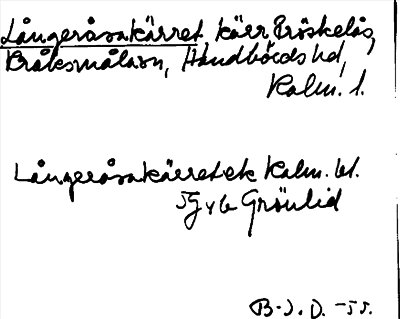 Långeråsakärret kärr Tröskelås,
Kråksmåla sn, Handbörds hd,
Kalm. l.
Långeråsakärret ek Kalm. bl.
5G v b Grönlid
B-J. D. -55.